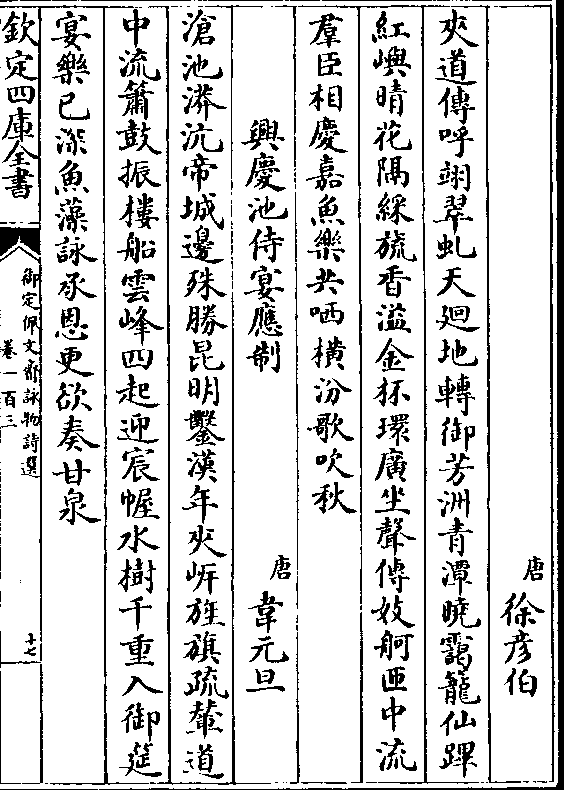 唐 徐彦伯
夾道傳呼翊翠虬天廻地轉御芳洲青潭曉靄籠仙蹕
紅嶼晴花隔綵旒香溢金杯環廣坐聲傳妓舸匝中流
羣臣相慶嘉魚樂共哂横汾歌吹秋
興慶池侍宴應制
唐 韋元旦
滄池漭沆帝城邊殊勝昆明鑿漢年夾岍旌旗疏輦道
中流簫鼓振樓船雲峰四起迎宸幄水樹千重入御筵
宴樂已深魚藻詠承恩更欲奏甘泉
欽定四庫全書
御定佩文齋詠物詩選
卷一百三
十七